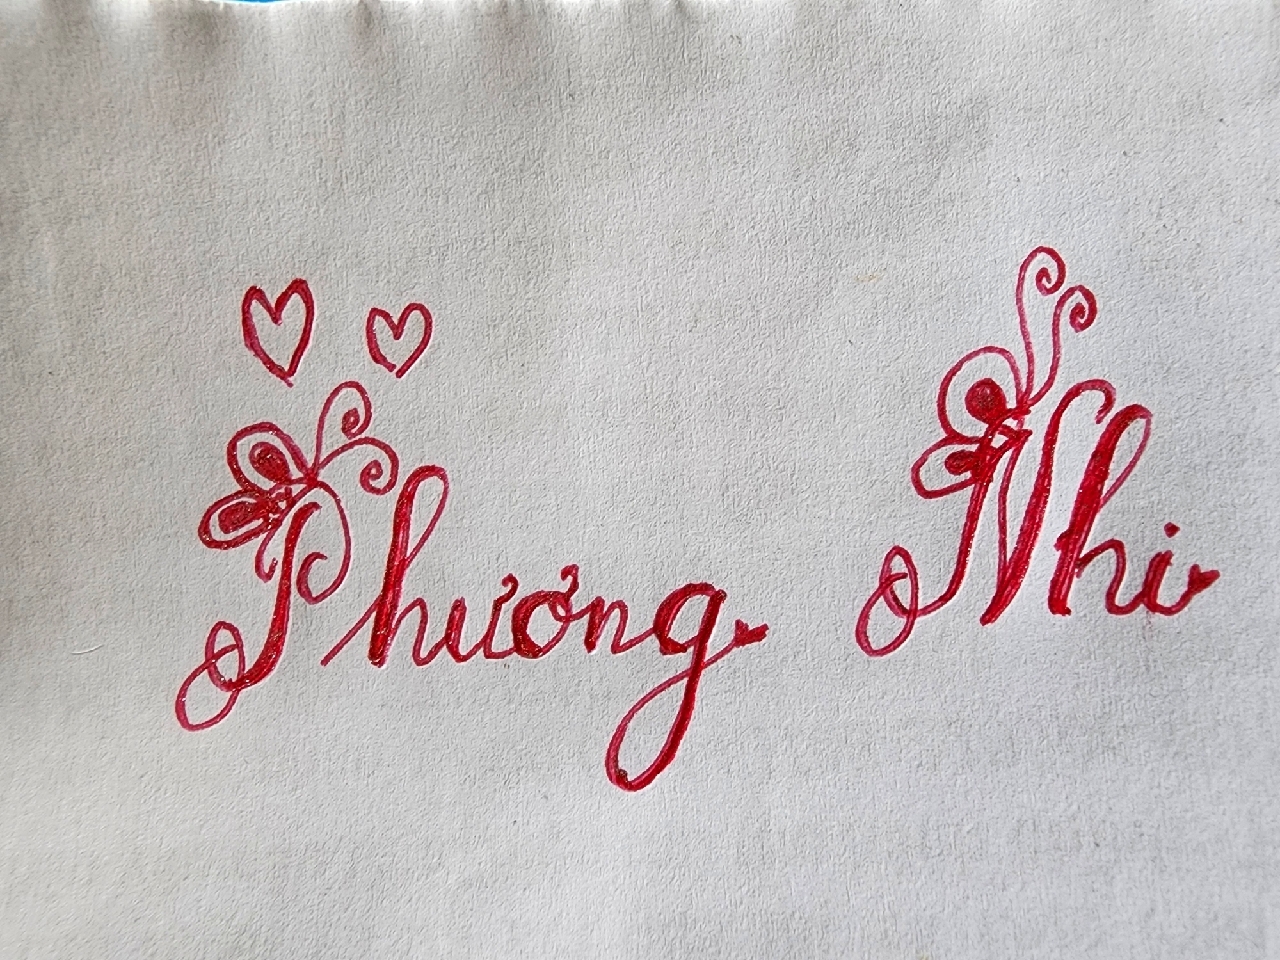 Phương Nhi